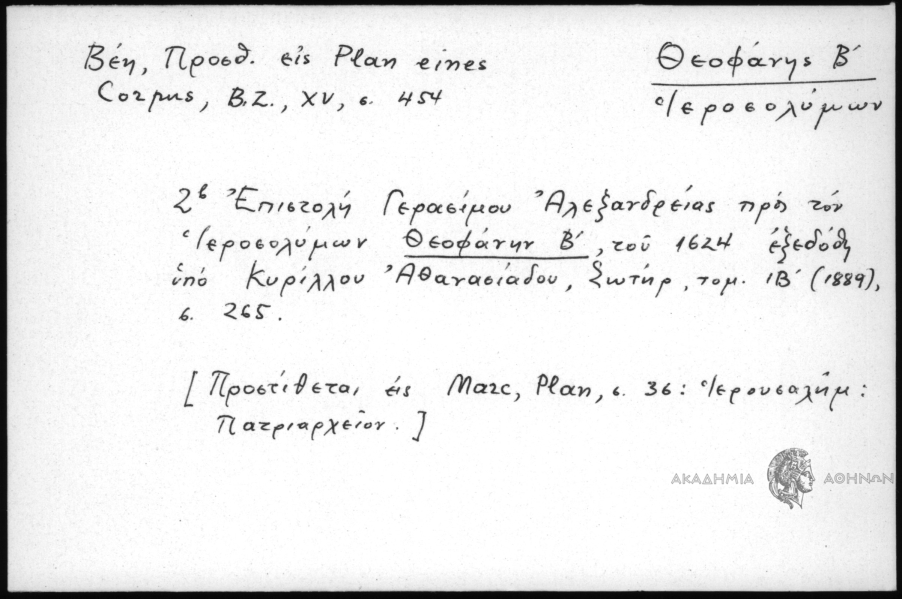 Βέη, Προσθ. εἰς Plan eines
Corpus, B.Z., XV, σ. 454
Θεοφάνης Β΄
Ἱεροσολύμων
2β Ἐπιστολή Γερασίμου Ἀλεξανδρείας πρός τόν
Ἱεροσολύμων Θεοφάνην Β΄, τοῦ 1624 ἐξεδόθη
ὑπό Κυρίλλου Ἀθανασιάδου, Σωτήρ, τομ. ΙΒ΄ (1889),
σ. 265.
[Προστίθεται εἰς Marc, Plan, σ. 36: Ἱερουσαλήμ:
Πατριαρχεῖον.]
ΑΚΑΔΗΜΙΑ ΑΘΗΝΩΝ